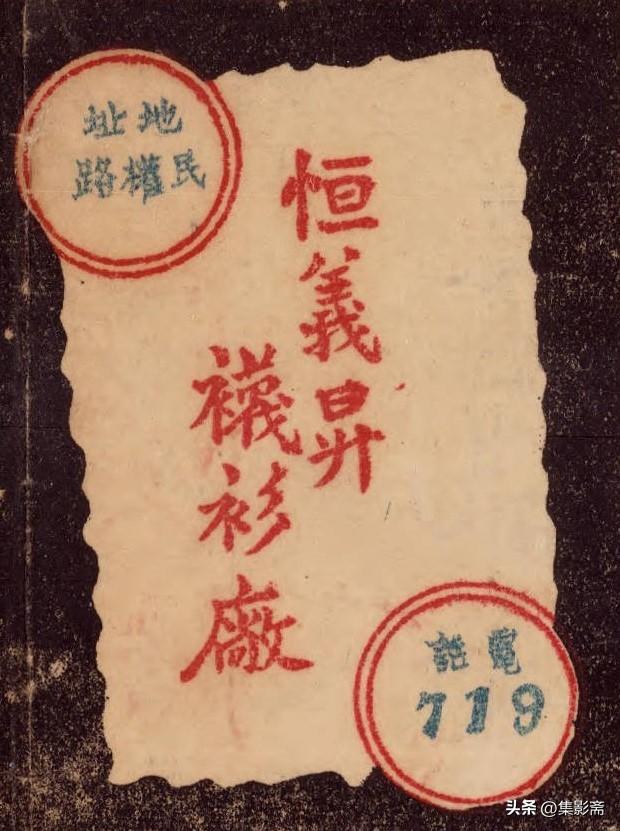 地址
民權路
恒義昇
襪衫廠
電話
719
头条 @集影斋